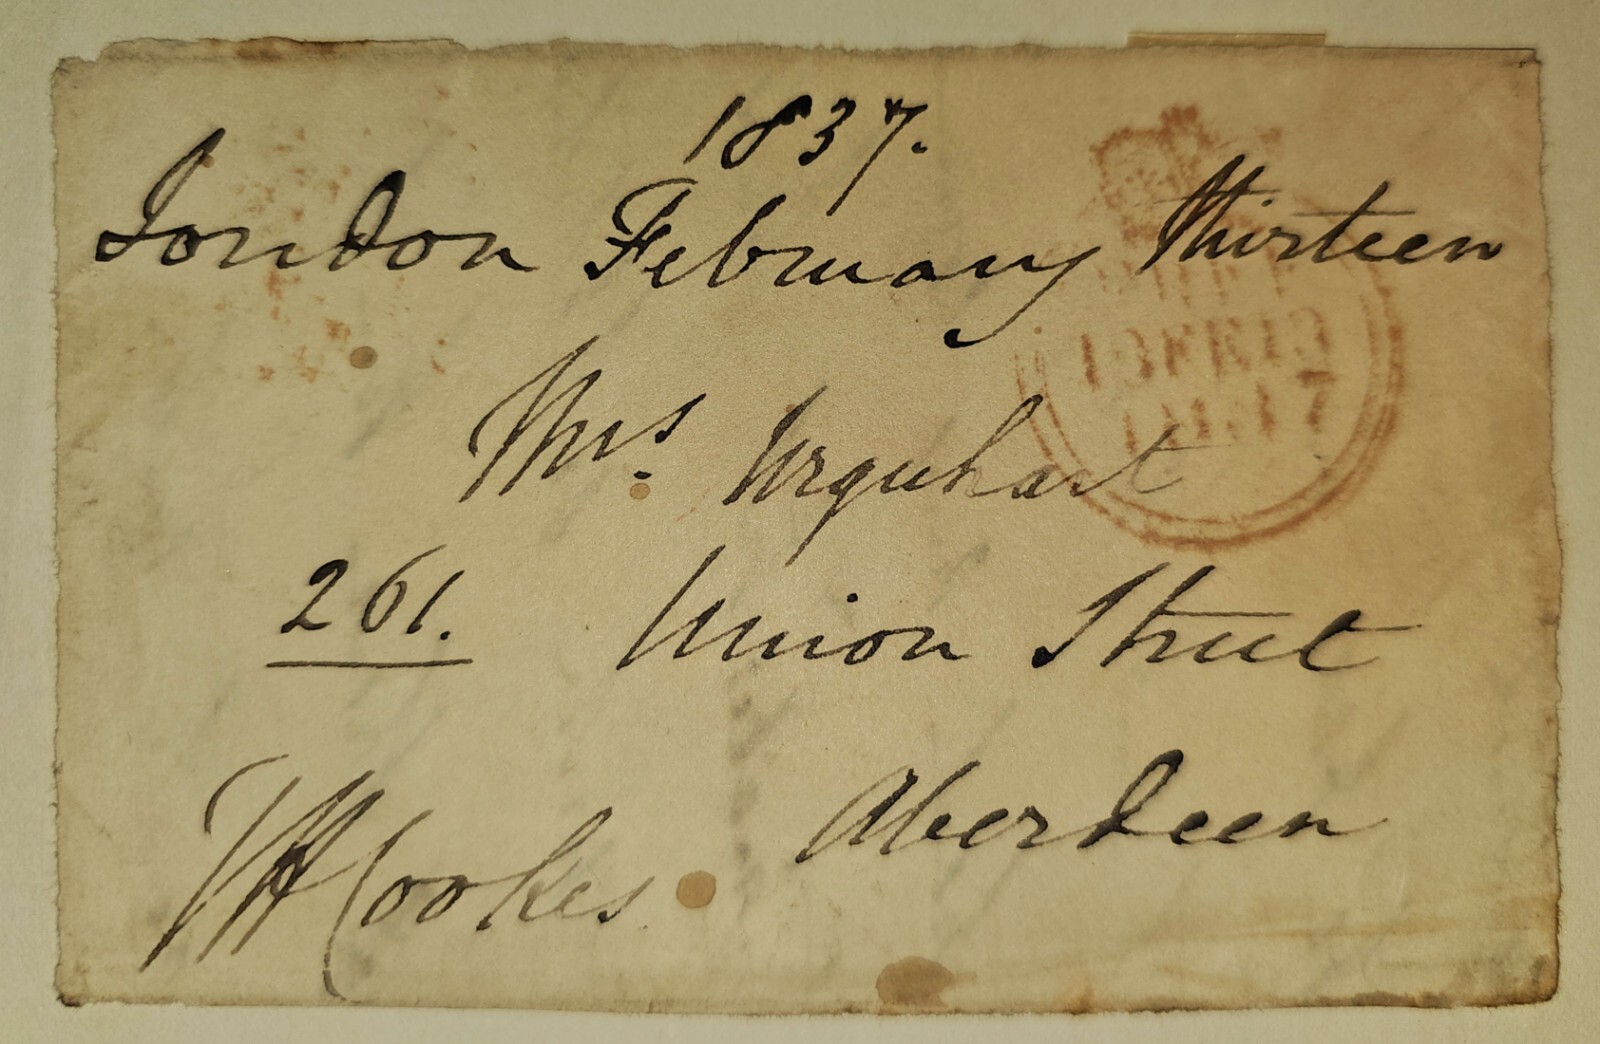 1837.
London February thirteen
Mrs. Urquhart
261. Union Street
Aberdeen
THCookes.